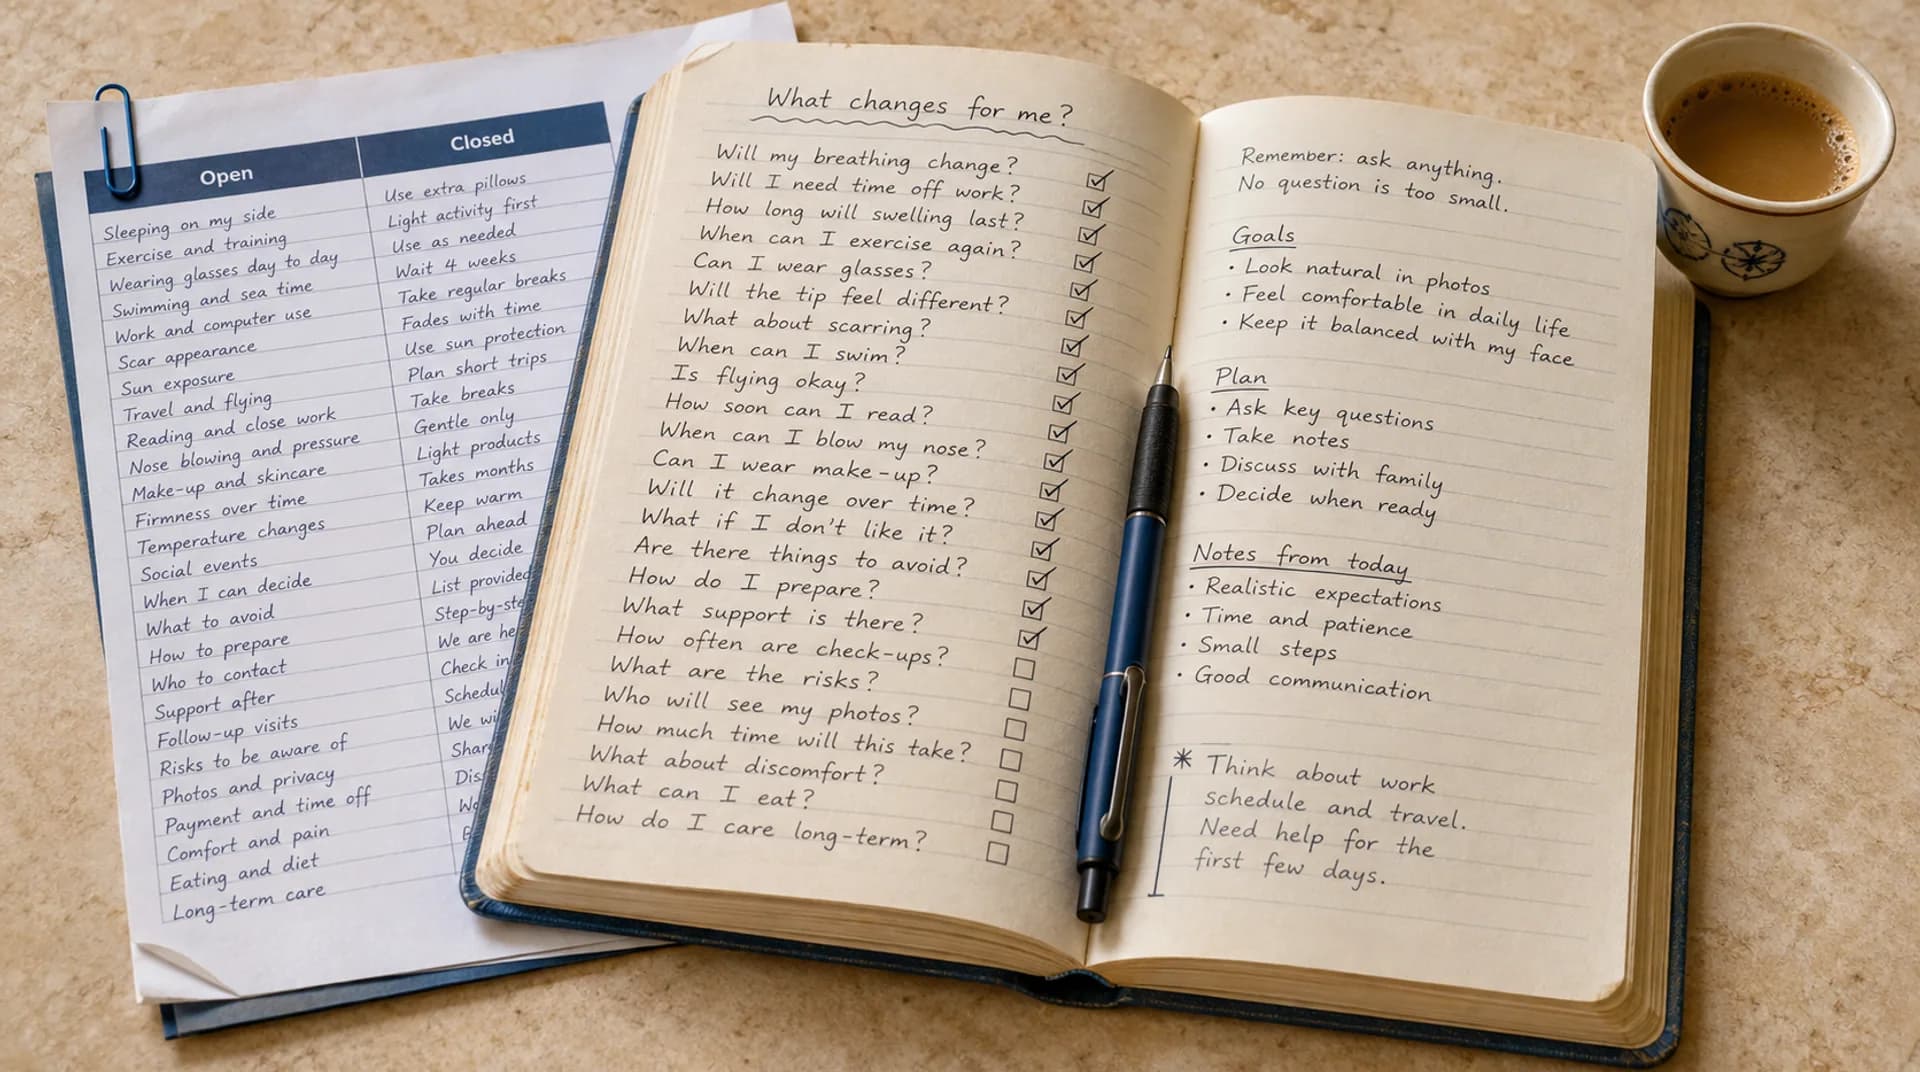 Open
Closed
Sleeping on my side
Exercise and training
Wearing glasses day to day
Swimming and sea time
Work and computer use
Scar appearance
Sun exposure
Travel and flying
Reading and close work
Nose blowing and pressure
Make-up and skincare
Firmness over time
Temperature changes
Social events
When I can decide
What to avoid
How to prepare
Who to contact
Support after
Follow-up visits
Risks to be aware of
Photos and privacy
Payment and time off
Comfort and pain
Eating and diet
Long-term care
Use extra pillows
Light activity first
Use as needed
Wait 4 weeks
Take regular breaks
Fades with time
Use sun protection
Plan short trips
Take breaks
Gentle only
Light products
Takes months
Keep warm
Plan ahead
You decide
List provided
Step-by-ste
We are he
Check in
Schedul
We wi
Shar
Dis
What changes for me?
Will my breathing change? ☑
Will I need time off work? ☑
How long will swelling last? ☑
When can I exercise again? ☑
Can I wear glasses? ☑
Will the tip feel different? ☑
What about scarring? ☑
When can I swim? ☑
Is flying okay? ☑
How soon can I read? ☑
When can I blow my nose? ☑
Can I wear make-up? ☑
Will it change over time? ☑
What if I don't like it? ☑
Are there things to avoid? ☑
How do I prepare? ☑
What support is there? ☑
How often are check-ups? ☐
What are the risks? ☐
Who will see my photos? ☐
How much time will this take? ☐
What about discomfort? ☐
What can I eat? ☐
How do I care long-term? ☐
Remember: ask anything.
No question is too small.
Goals
• Look natural in photos
• Feel comfortable in daily life
• Keep it balanced with my face
Plan
• Ask key questions
• Take notes
• Discuss with family
• Decide when ready
Notes from today
• Realistic expectations
• Time and patience
• Small steps
• Good communication
* Think about work
schedule and travel.
Need help for the
first few days.